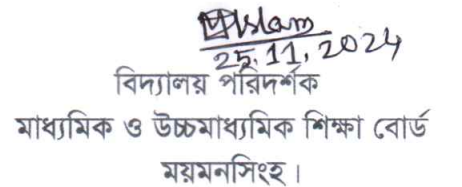 Islam
25.11.2024
বিদ্যালয় পরিদর্শক
মাধ্যমিক ও উচ্চমাধ্যমিক শিক্ষা বোর্ড
ময়মনসিংহ।